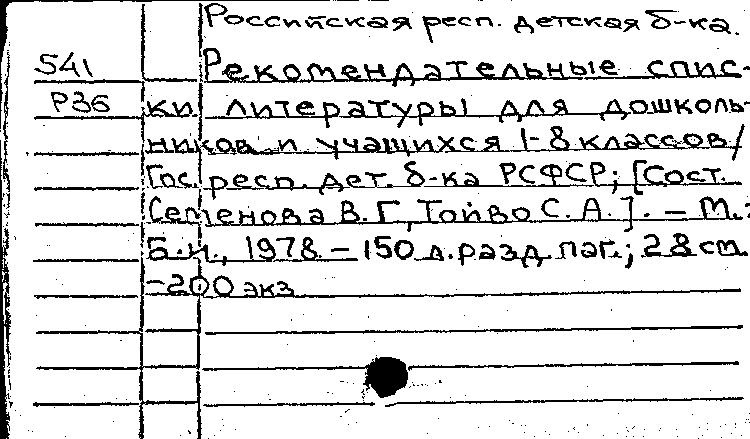 Российская респ. детская б-ка.
541 Рекомендательные спис-
Р36 ки литературы для дошколь-
ников и учащихся 1-8 классов/
Гос. респ. дет. б-ка РСФСР; [Сост.
Семенова В. Г., Тойво С. А.]. – М.:
Б.и., 1978 – 150 л. разд. паг.; 28 см.
–200 экз